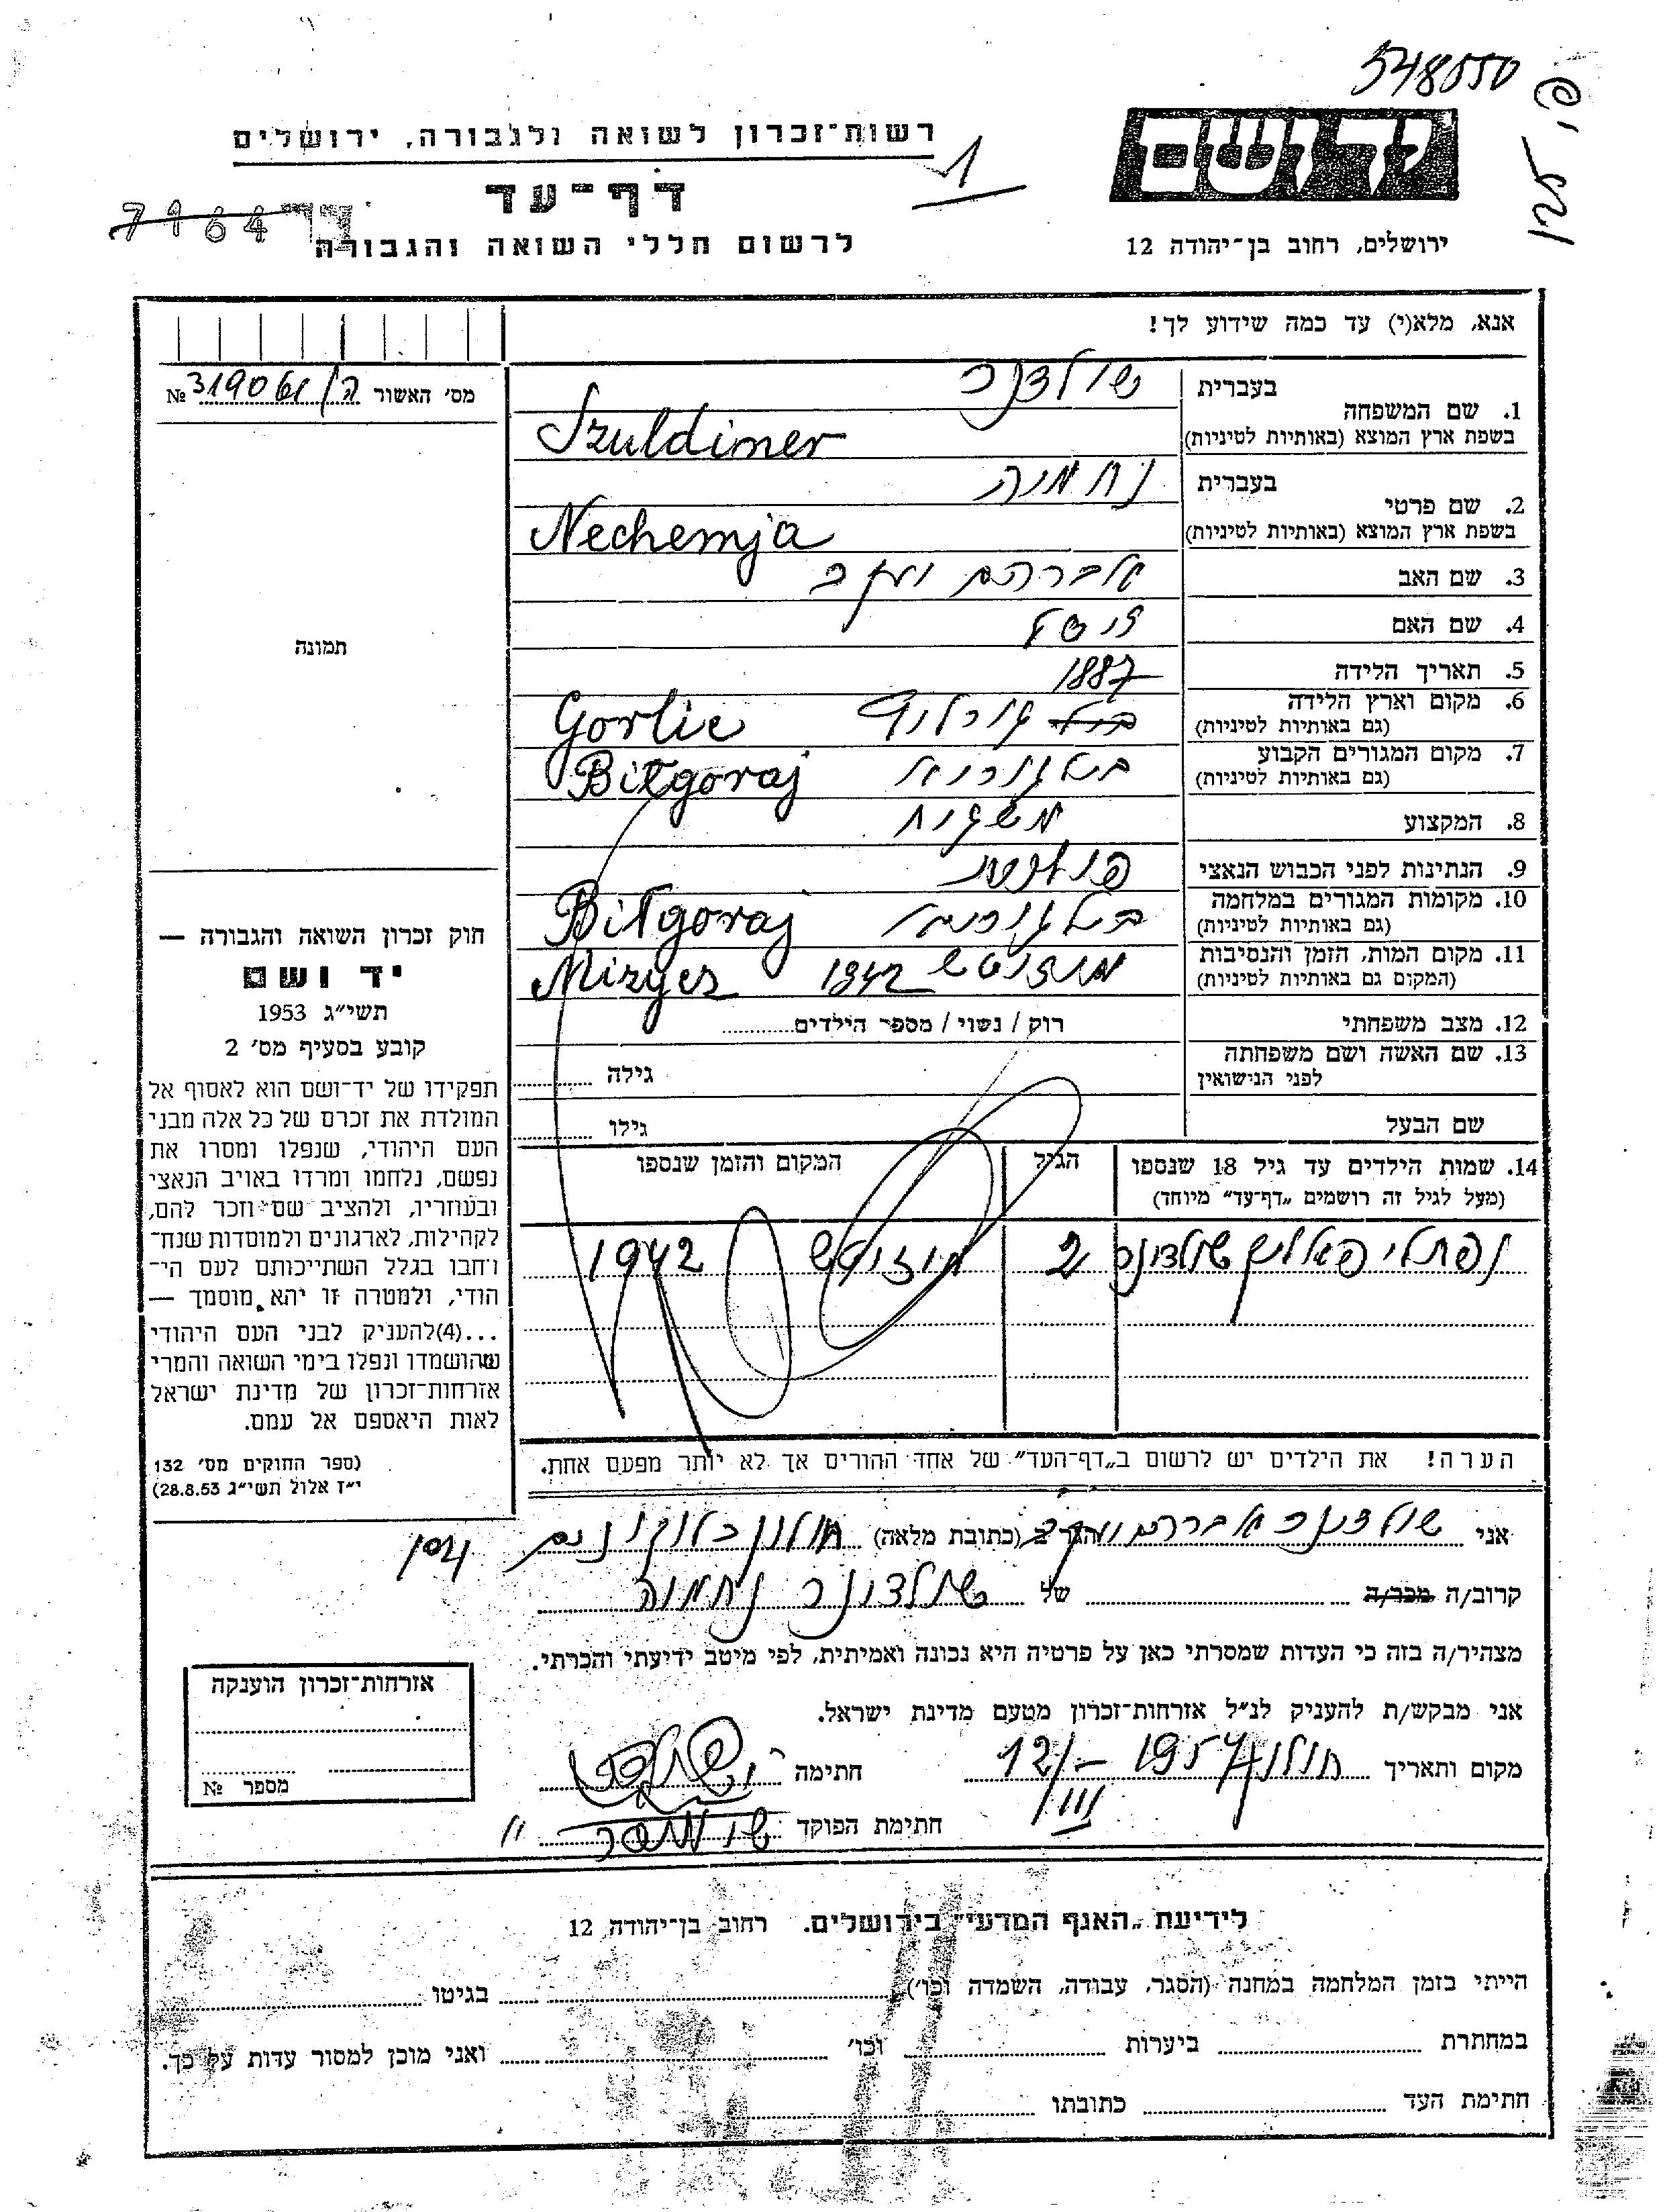 548550
יד ושם
רשות־זכרון לשואה ולגבורה, ירושלים
1
דף־עד
7164 דף
לרשום חללי השואה והגבורה
ירושלים, רחוב בן־יהודה 12
אנא, מלא(י) עד כמה שידוע לך!
מס׳ האשור 319061 №
1. שם המשפחה
בעברית שולדינר
בשפת ארץ המוצא (באותיות לטיניות) Szuldiner
2. שם פרטי
בעברית נחמיה
בשפת ארץ המוצא (באותיות לטיניות) Nechemja
3. שם האב אברהם יעקב
4. שם האם
5. תאריך הלידה 1887
6. מקום וארץ הלידה
(גם באותיות לטיניות) גורליץ Gorlic
7. מקום המגורים הקבוע
(גם באותיות לטיניות) בילגוריי Biłgoraj
8. המקצוע משגיח
9. הנתינות לפני הכבוש הנאצי פולנית
10. מקומות המגורים במלחמה
(גם באותיות לטיניות) בילגוריי Biłgoraj
11. מקום המות, הזמן והנסיבות
(המקום גם באותיות לטיניות) 1942 Mizyez
12. מצב משפחתי רוק / נשוי / מספר הילדים
13. שם האשה ושם משפחתה
לפני הנישואין גילה
שם הבעל גילו
14. שמות הילדים עד גיל 18 שנספו הגיל המקום והזמן שנספו
(מעל לגיל זה רושמים „דף־עד״ מיוחד)
נפתלי שולדינר 2 1942
הערה! את הילדים יש לרשום ב„דף־העד״ של אחד ההורים אך לא יותר מפעם אחת.
תמונה
חוק זכרון השואה והגבורה —
יד ושם
תשי״ג 1953
קובע בסעיף מס׳ 2
תפקידו של יד־ושם הוא לאסוף אל
המולדת את זכרם של כל אלה מבני
העם היהודי, שנפלו ומסרו את
נפשם, נלחמו ומרדו באויב הנאצי
ובעוזריו, ולהציב שם וזכר להם,
לקהילות, לארגונים ולמוסדות שנח־
רחבו בגלל השתייכותם לעם הי־
הודי, ולמטרה זו יהא מוסמך —
...(4)להעניק לבני העם היהודי
שהושמדו ונפלו בימי השואה והמרי
אזרחות־זכרון של מדינת ישראל
לאות היאספם אל עמם.
(ספר החוקים מס׳ 132
י״ז אלול תשי״ג 28.8.53)
אני שולדינר אברהם יעקב הגר ב (כתובת מלאה) חולון
קרוב/ה מכר/ה של שולדינר נחמיה
מצהיר/ה בזה כי העדות שמסרתי כאן על פרטיה היא נכונה ואמיתית, לפי מיטב ידיעתי והכרתי.
אני מבקש/ת להעניק לנ״ל אזרחות־זכרון מטעם מדינת ישראל.
מקום ותאריך חולון 12/III – 1957 חתימה
חתימת הפוקד
אזרחות־זכרון הוענקה
מספר №
לידיעת „האגף המדעי״ בירושלים. רחוב בן־יהודה 12
הייתי בזמן המלחמה במחנה (הסגר, עבודה, השמדה וכו׳) בגיטו
במחתרת ביערות וכו׳ ואני מוכן למסור עדות על כך.
חתימת העד כתובתו